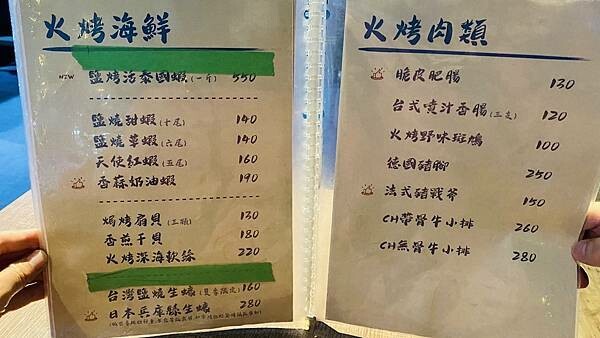 火烤海鮮
NEW 鹽烤活泰國蝦(一斤) 550
鹽燒甜蝦(十尾) 140
鹽燒草蝦(六尾) 140
天使紅蝦(五尾) 160
香蒜奶油蝦 190
焗烤扇貝(三顆) 130
香煎干貝 180
火烤深海軟絲 220
台灣鹽燒生蠔(夏季限定) 160
日本兵庫縣生蠔 280
火烤肉類
脆皮肥腸 130
台式噴汁香腸(三支) 120
火烤野味斑鳩 100
德國豬腳 250
法式豬戰斧 150
CH帶骨牛小排 260
CH無骨牛小排 280